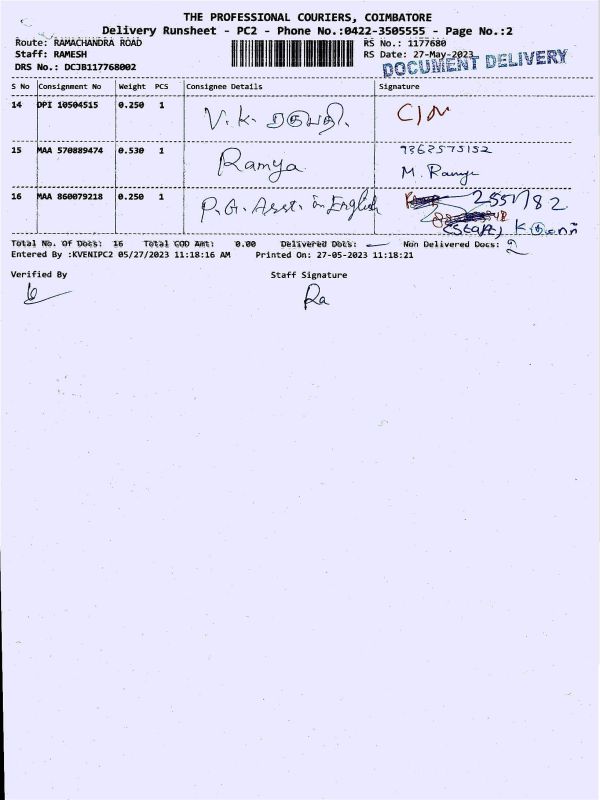 THE PROFESSIONAL COURIERS, COIMBATORE
Delivery Runsheet - PC2 - Phone No.:0422-3505555 - Page No.:2
Route: RAMACHANDRA ROAD
RS No.: 1177680
Staff: RAMESH
RS Date: 27-May-2023
DRS No.: DCJB117768002
DOCUMENT DELIVERY
S No Consignment No Weight PCS Consignee Details Signature
14 DPI 10504515 0.250 1 V.K. C/M
15 MAA 570889474 0.530 1 Ramya 9362575152
M. Ramya
16 MAA 860079218 0.250 1 P.G. Asst. in English 2551782
Total No. Of Docs: 16 Total COD Amt: 0.00 Delivered Dots: Non Delivered Docs: 2
Entered By :KVENIPC2 05/27/2023 11:18:16 AM Printed On: 27-05-2023 11:18:21
Verified By Staff Signature
Ra